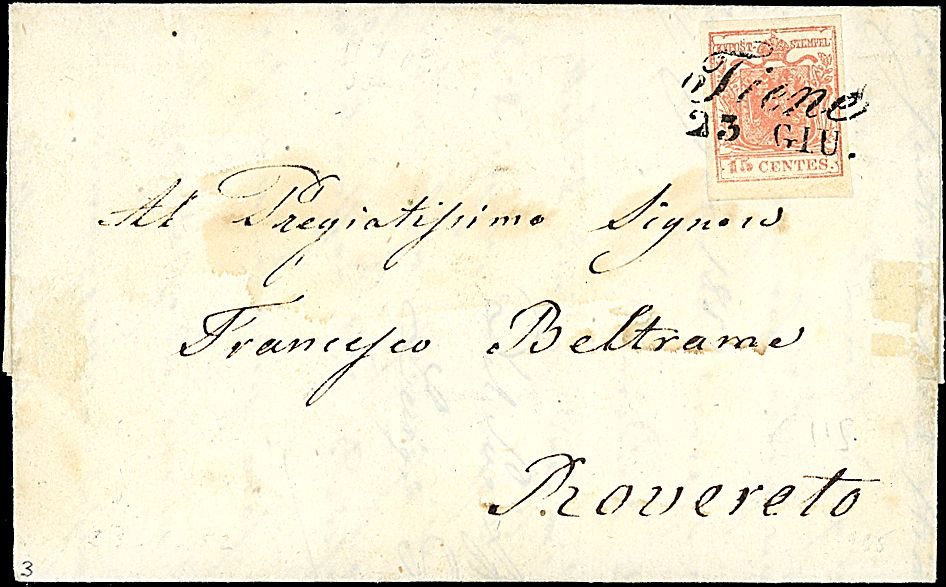 KKPOST-STEMPEL
Tione
23 GIU.
15 CENTES.
Al Pregiatissimo Signore
Francesco Beltrame
Rovereto
3